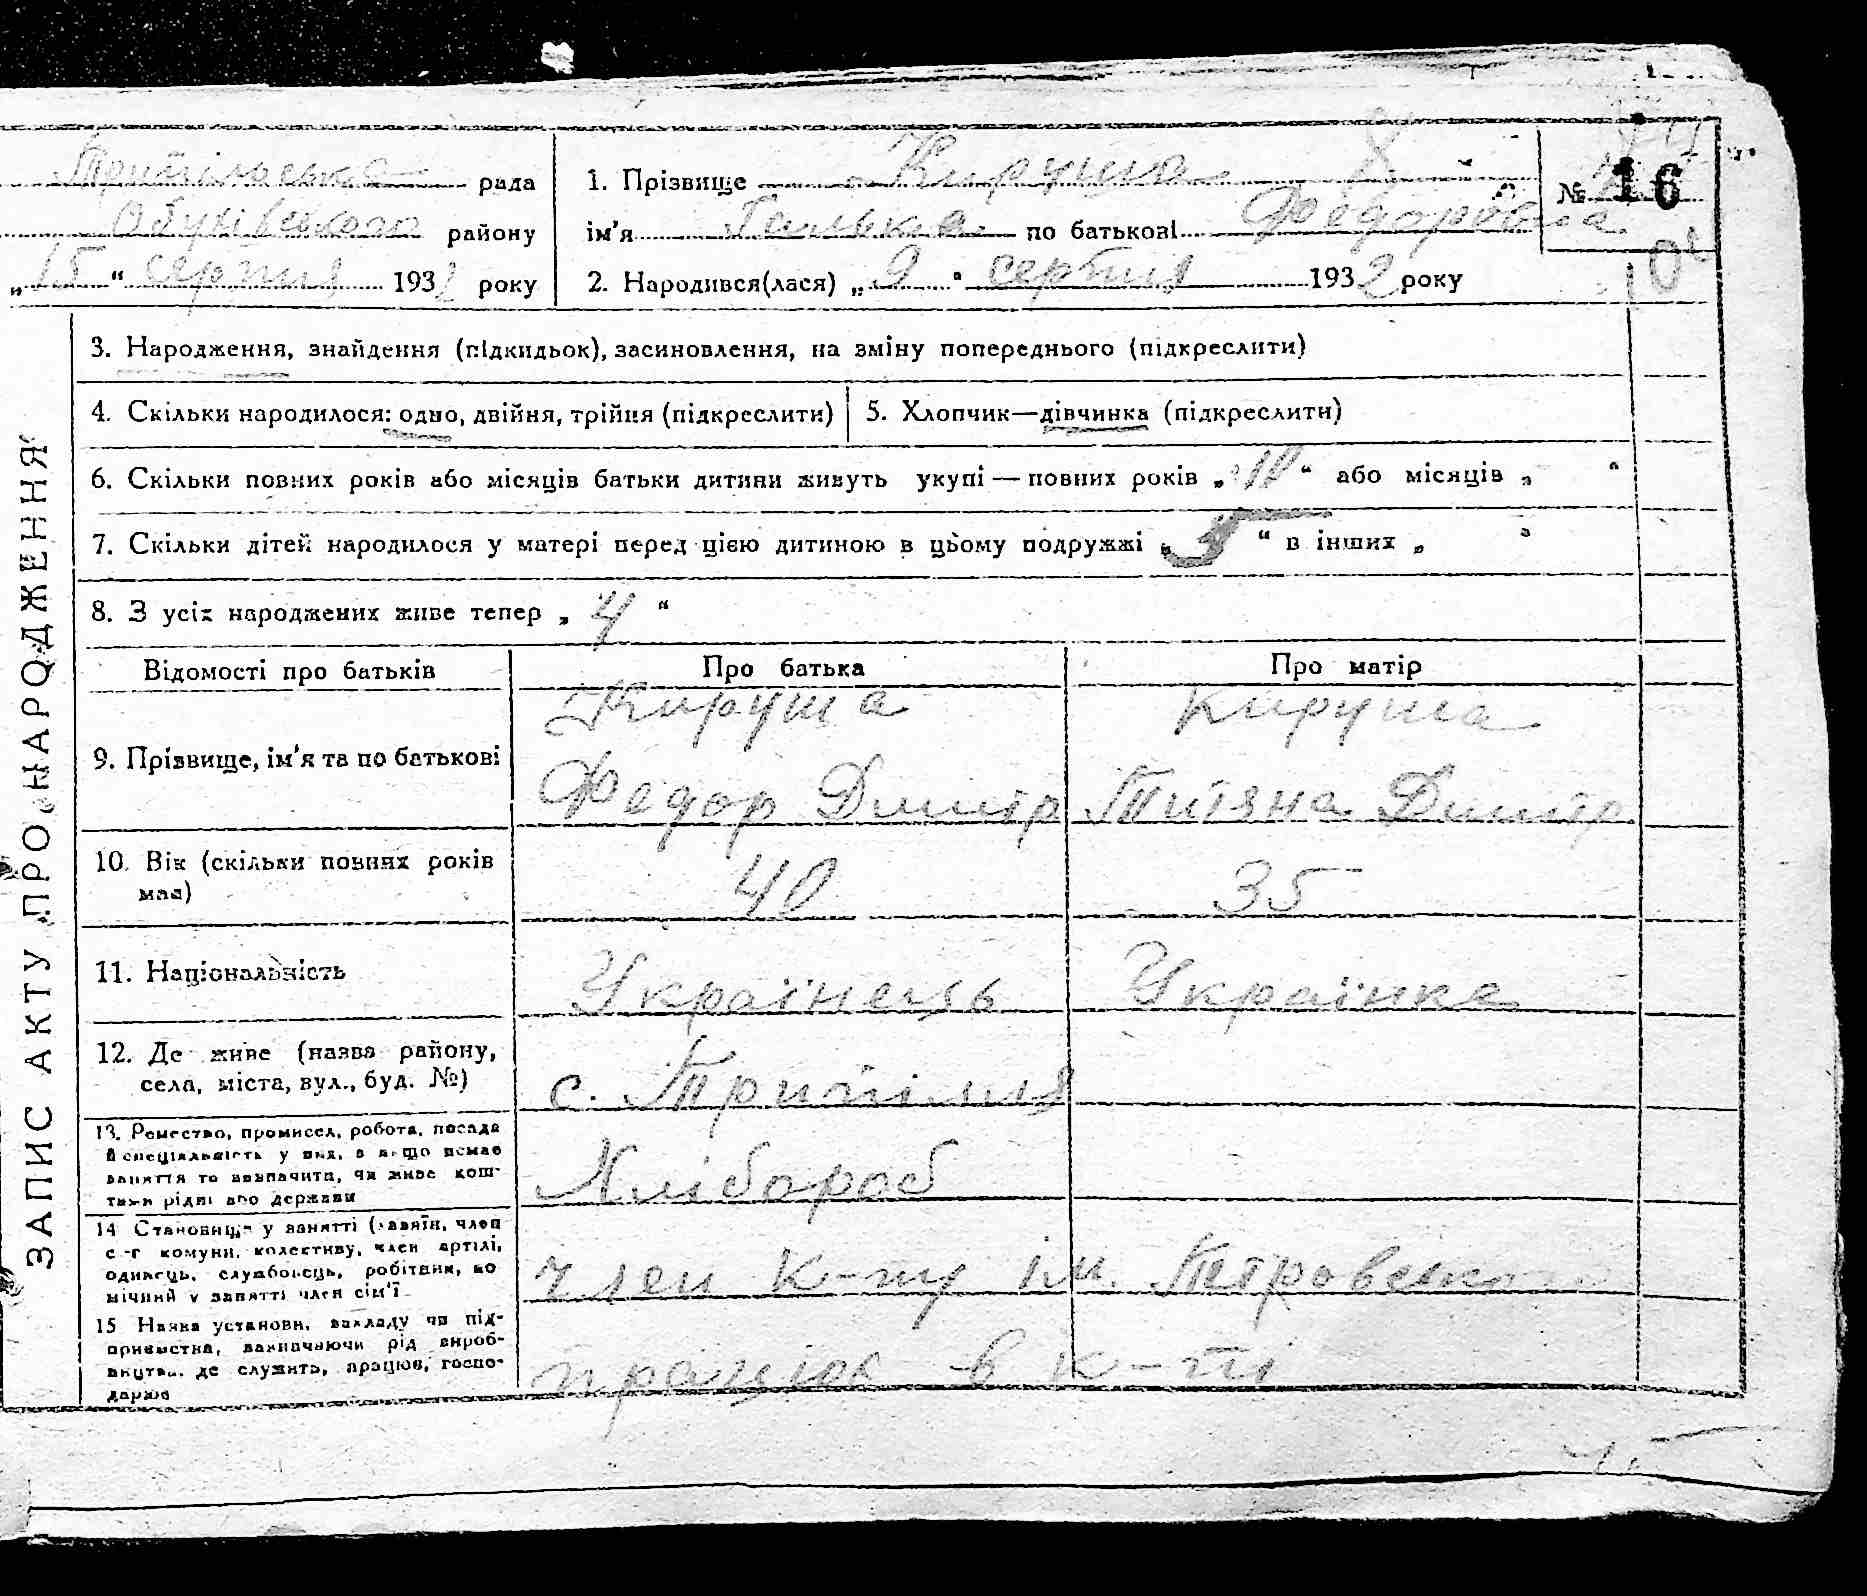 Трипільська рада
Обухівського району
„15“ серпня 1932 року
1. Прізвище Кируша
ім'я Галька по батькові Федоровна
№ 16
2. Народився(лася) „9“ серпня 1932 року
ЗАПИС АКТУ ПРО НАРОДЖЕННЯ
3. Народження, знайдення (підкидьок), засиновлення, на зміну попереднього (підкреслити)
4. Скільки народилося: одно, двійня, трійня (підкреслити)
5. Хлопчик—дівчинка (підкреслити)
6. Скільки повних років або місяців батьки дитини живуть укупі — повних років „10“ або місяців „ “
7. Скільки дітей народилося у матері перед цією дитиною в цьому подружжі „5“ в інших „ “
8. З усіх народжених живе тепер „4“
Відомості про батьків Про батька Про матір
9. Прізвище, ім'я та по батькові
Кируша Кируша
Федор Дмитр Титяна Дмитр
10. Вік (скільки повних років
має)
40 35
11. Національність Українець Українка
12. Де живе (назва району,
села, міста, вул., буд. №)
с. Трипілля
13. Ремество, промисел, робота, посада
й спеціяльність у них, а якщо немає
заняття то зазначити, чи живе кош-
тами рідні або держави
Хлібороб
14 Становище у занятті (хазяїн, член
с.-г комуни, колективу, член артілі,
одинець, службовець, робітник, по
мічний у занятті член сім'ї
член к-ту ім. Петровськ
15 Назва установи, закладу чи під-
приємства, зазначаючи рід вироб-
ництва, де служить, працює, госпо-
дарює
працює в к-ті